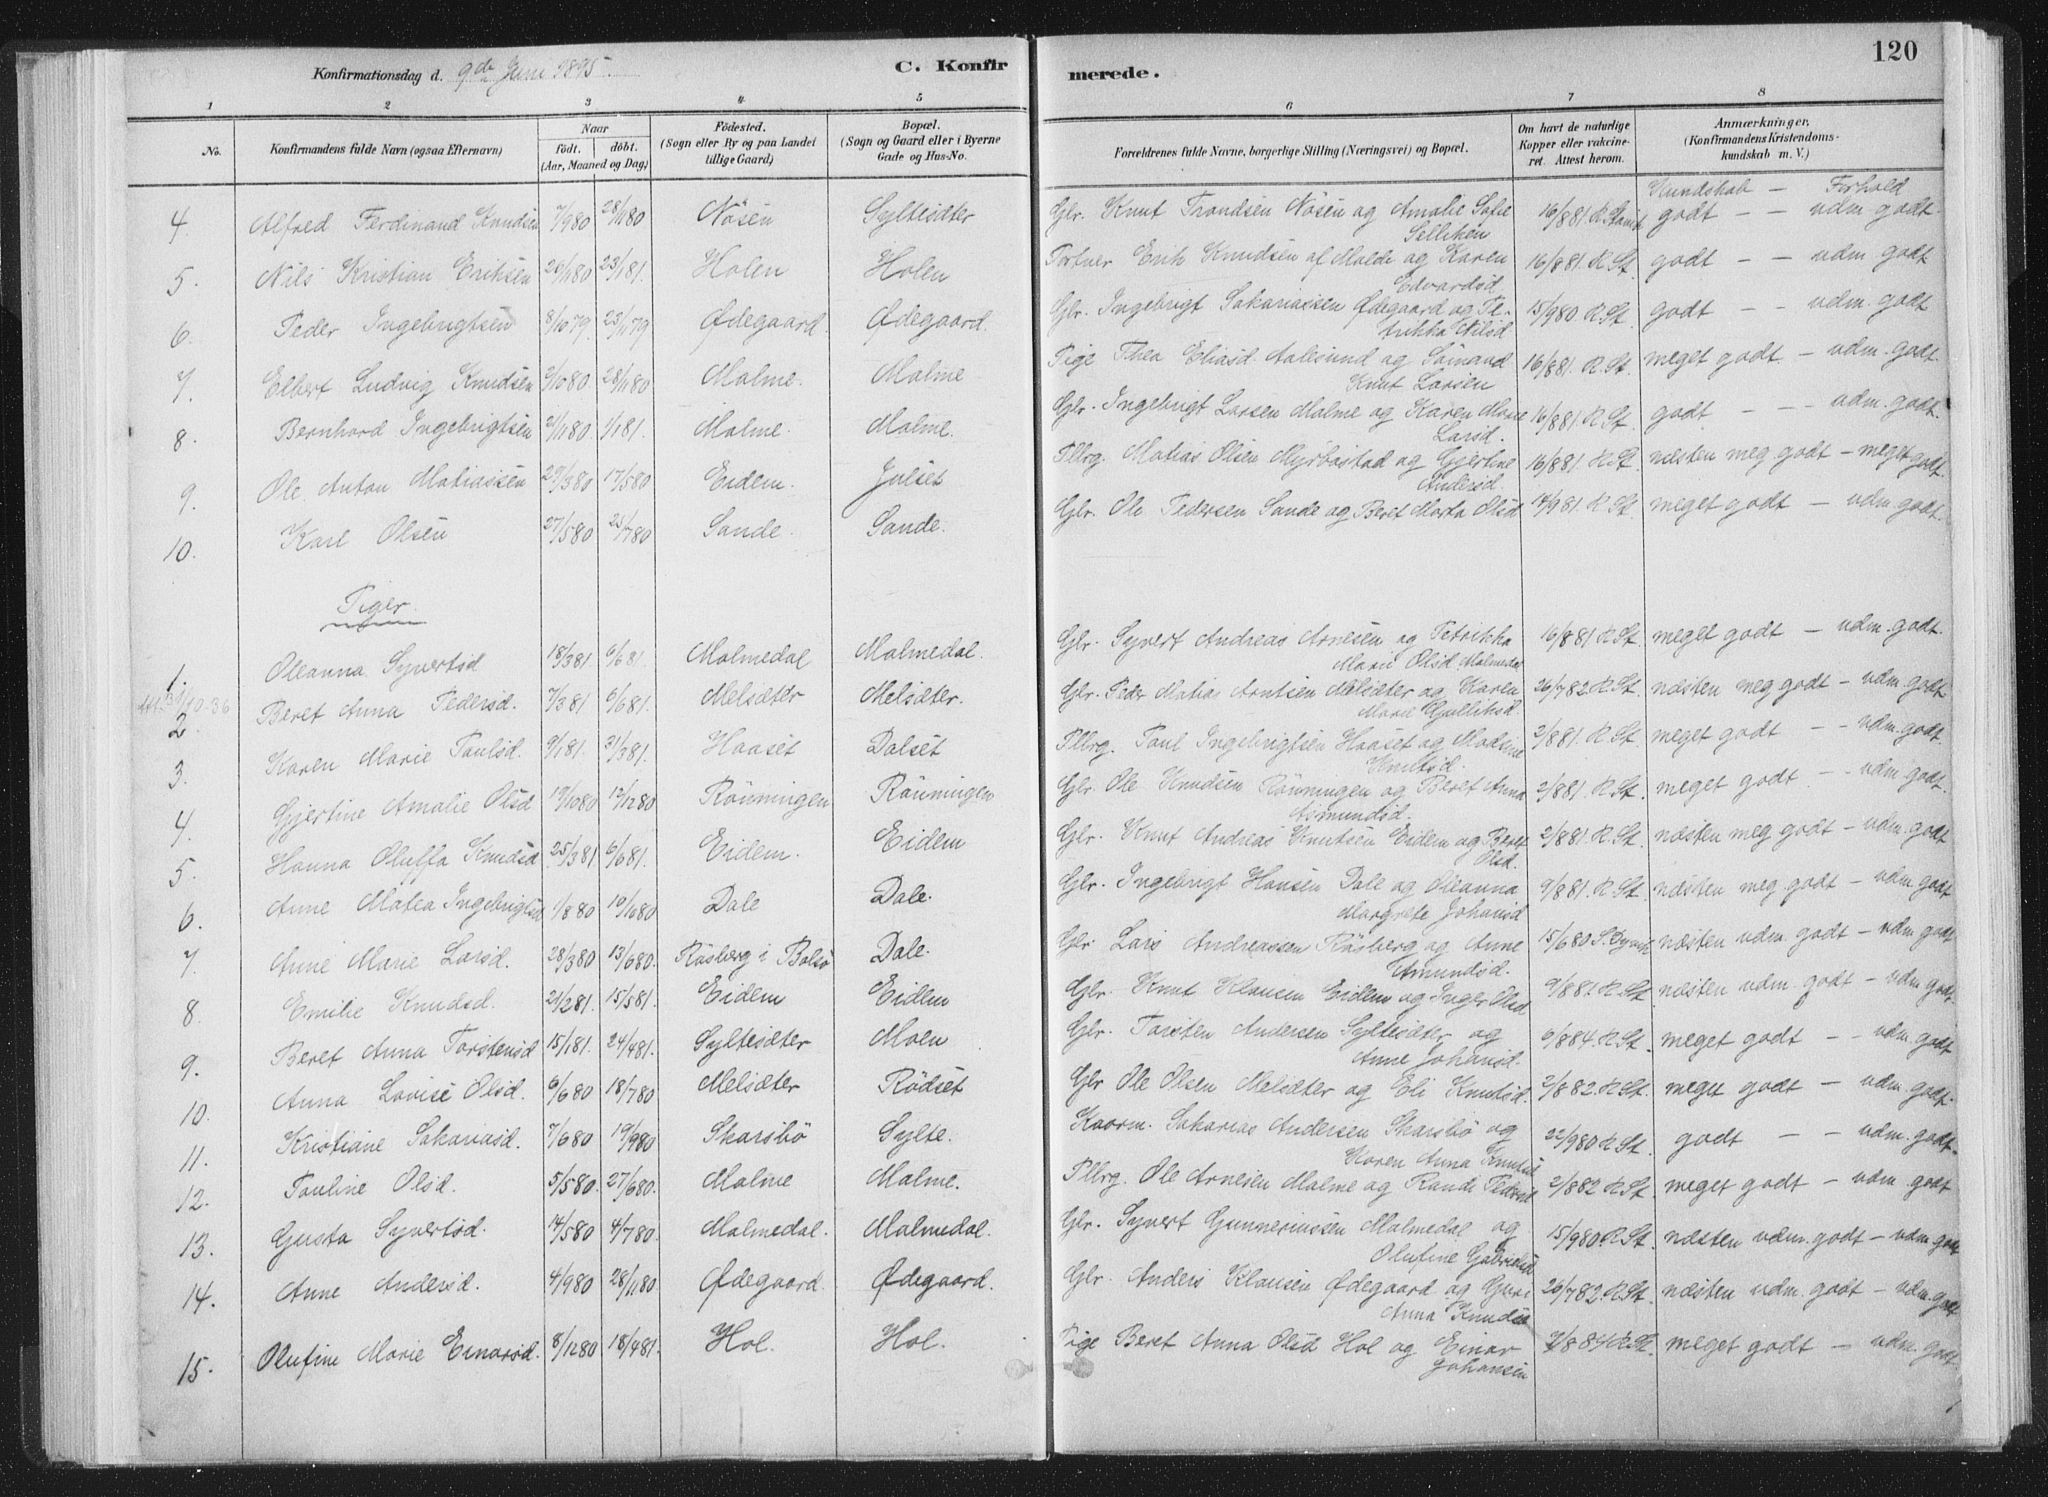 120
Konfirmationsdag d. 9de Juni 1895. C. Konfirmerede.
1 2 3 4 5 6 7 8
No. Konfirmandens fulde Navn (ogsaa Efternavn) Naar født. døbt. (Aar, Maaned og Dag) Fødested. (Sogn eller By og paa Landet tillige Gaard) Bopæl. (Sogn og Gaard eller i Byerne Gade og Hus-No. Forældrenes fulde Navne, borgerlige Stilling (Næringsvei) og Bopæl. Om havt de naturlige Kopper eller vakcineret. Attest herom. Anmærkninger. (Konfirmandens Kristendomskundskab m. V.)
Kundskab — Forhold
4. Alfred Ferdinand Knudsen 7/980 28/1180 Nösen Syltesæter Glr. Knut Trondsen Nösen og Amalie Sofie Selliken 16/881. R. Stavik godt — — udm. godt
5. Nils Kristian Eriksen 26/1180 23/181. Holen Holen Portner Erik Knudsen af Molde og Karen Edvardsd. 16/881. R. St. godt — — udm. godt
6. Peder Ingebrigtsen 8/1079. 23/1179 Ødegaard. Ødegaard. Glr. Ingebrigt Sakariassen Ødegaard og Petrikka Nilsd 15/980 R. St. godt — — udm. godt
7. Elbert Ludvig Knudsen 2/1080 28/1180 Malme. Malme Pige Thea Eliasd Aalesund og Sömand Knut Larsen 16/881. R. St. meget godt — udm. godt
8. Bernhard Ingebrigtsen 21/1180 1/181. Malme. Malme. Glr. Ingebrigt Larsen Malme og Karen Marie Larsd. 16/881. R. St. godt — — udm. godt.
9. Ole Anton Matiassen 29/380 17/580 Eidem. Julset Pllrg. Matias Olsen Myrbostad og Gjertine Andersd. 16/881. R. St. næsten meg. godt — meget godt.
10. Karl Olsen 27/580 25/780 Sande. Sande. Glr. Ole Pedersen Sande og Beret Marta Olsd 14/981. R. St. meget godt — udm. godt.
Piger.
1. Oleanna Syvertsd 18/381 6/681. Malmedal Malmedal. Glr. Syvert Andreas Arnesen og Petrikka Marie Olsd. Malmedal 16/881 R. St. meget godt — udm. godt.
2. Beret Anna Pedersd. 7/381 6/681. Melsæter Melsæter. Glr. Peder Matias Arntsen Melsæter og Karen Marie Gulliksd. 26/782 R. St. næsten meg godt — udm. godt
3. Karen Marie Paulsd. 9/181. 31/381. Haaset Dalset Pllrg. Paul Ingebrigtsen Haaset og Madsine Knutsd. 2/881. R. St. meget godt — — udm. godt.
4. Gjertine Amalie Olsd 19/1080 12/1280 Rönningen Rönningen Glr. Ole Knudsen Rönningen og Beret Anna Asmundsd. 2/881. R. St. meget godt — — udm. godt.
5. Hanna Oluffa Knudsd 25/381 6/681. Eidem. Eidem Glr. Knut Andreas Knutsen Eidem og Beret Olsd. 2/881. R. St. næsten meg. godt — udm. godt
6. Anne Matea Ingebrigtsd 1/880 10/1080 Dale Dale. Glr. Ingebrigt Hansen Dale og Oleanna Margrete Johansd 9/881. R. St. næsten meg. godt — udm. godt
7. Anne Marie Larsd. 28/380 13/680. Røsberg i Bolsø Dale. Glr. Lars Andreassen Røsberg og Anne Amundsd. 15/680 næsten udm. godt — udm. godt
8. Emilie Knudsd. 21/281. 15/581. Eidem Eidem Glr. Knut Klausen Eidem og Inger Olsd 9/881. R. St. næsten udm. godt — udm. godt.
9. Beret Anna Torstensd 15/181. 24/481. Syltesæter Moen Glr. Torsten Andersen Syltesæter og Anne Johansd. 6/884. R. St. meget godt — — udm. godt
10. Anna Lovise Olsd. 6/680 18/780 Melsæter Rödset Glr Ole Olsen Melsæter og Eli Knutsd. 2/882. R. St. meget godt — udm. godt.
11. Kristiane Sakariasd. 7/680 19/980 Skarsbö Sylte. Kaarm. Sakarias Andersen Skarsbö og Karen Anna Knutsd 22/980 R. St. godt — — udm. godt.
12. Pauline Olsd. 5/580. 27/680. Malme Malme. Pllrg. Ole Arnesen Malme og Randi Pedersd 2/882 R. St. meget godt — udm. godt
13. Gusta Syvertsd. 14/580 4/780. Malmedal. Malmedal. Glr. Syvert Gunneriussen Malmedal og Olufine Gabrielsd 15/980. R. St. næsten udm. godt — udm. godt
14. Anne Andersd. 4/980 28/1180 Ødegaard. Ødegaard. Glr. Anders Klausen Ødegaard og Guri Anna Knudsd 26/782. R. St. næsten udm. godt — udm. godt
15. Olufine Marie Einarsd. 8/1280 18/481. Hol. Hol. Pige Beret Anna Olsd Hol og Einar Johansen R. St. meget godt — udm. godt.